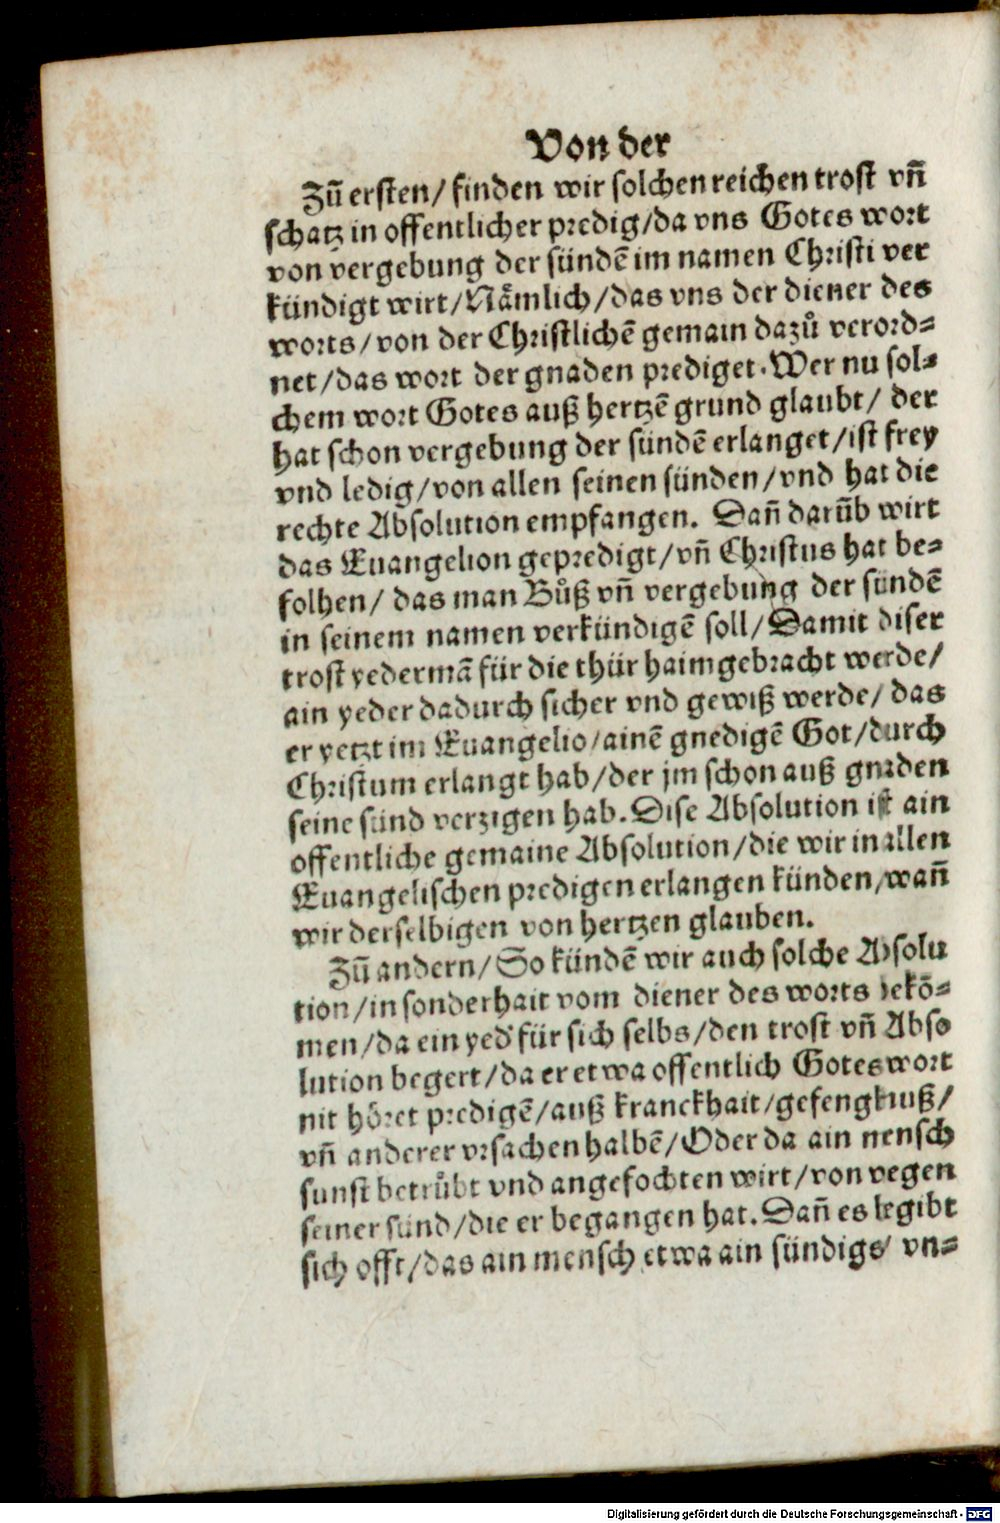 Von der
Zů ersten/ finden wir solchen reichen trost vñ
schatz in offentlicher predig/da vns Gotes wort
von vergebung der sündē im namen Christi ver
kündigt wirt/Nämlich/das vns der diener des
worts/von der Christlichē gemain dazů verord=
net/das wort der gnaden prediget. Wer nu sol=
chem wort Gotes auß hertzē grund glaubt/ der
hat schon vergebung der sündē erlanget/ist frey
vnd ledig/von allen seinen sünden/vnd hat die
rechte Absolution empfangen. Dañ darūb wirt
das Euangelion gepredigt/vñ Christus hat be=
folhen/ das man Bůß vñ vergebung der sündē
in seinem namen verkündigē soll/Damit diser
trost yedermā für die thür haimgebracht werde/
ain yeder dadurch sicher vnd gewiß werde/ das
er yetzt im Euangelio/ainē gnedigē Got/durch
Christum erlangt hab/der jm schon auß gnaden
seine sünd verzigen hab. Dise Absolution ist ain
offentliche gemaine Absolution/die wir in allen
Euangelischen predigen erlangen künden/wañ
wir derselbigen von hertzen glauben.
Zů andern/So kündē wir auch solche Absolu
tion/in sonderhait vom diener des worts bekō=
men/da ein yed' für sich selbs/den trost vñ Abso
lution begert/da er etwa offentlich Gotes wort
nit höret predigē/auß kranckhait/gefengknuß/
vñ anderer vrsachen halbē/Oder da ain mensch
sunst betrübt vnd angefochten wirt/von wegen
seiner sünd/die er begangen hat. Dañ es begibt
sich offt/das ain mensch etwa ain sündigs/ vn=
Digitalisierung gefördert durch die Deutsche Forschungsgemeinschaft - DFG